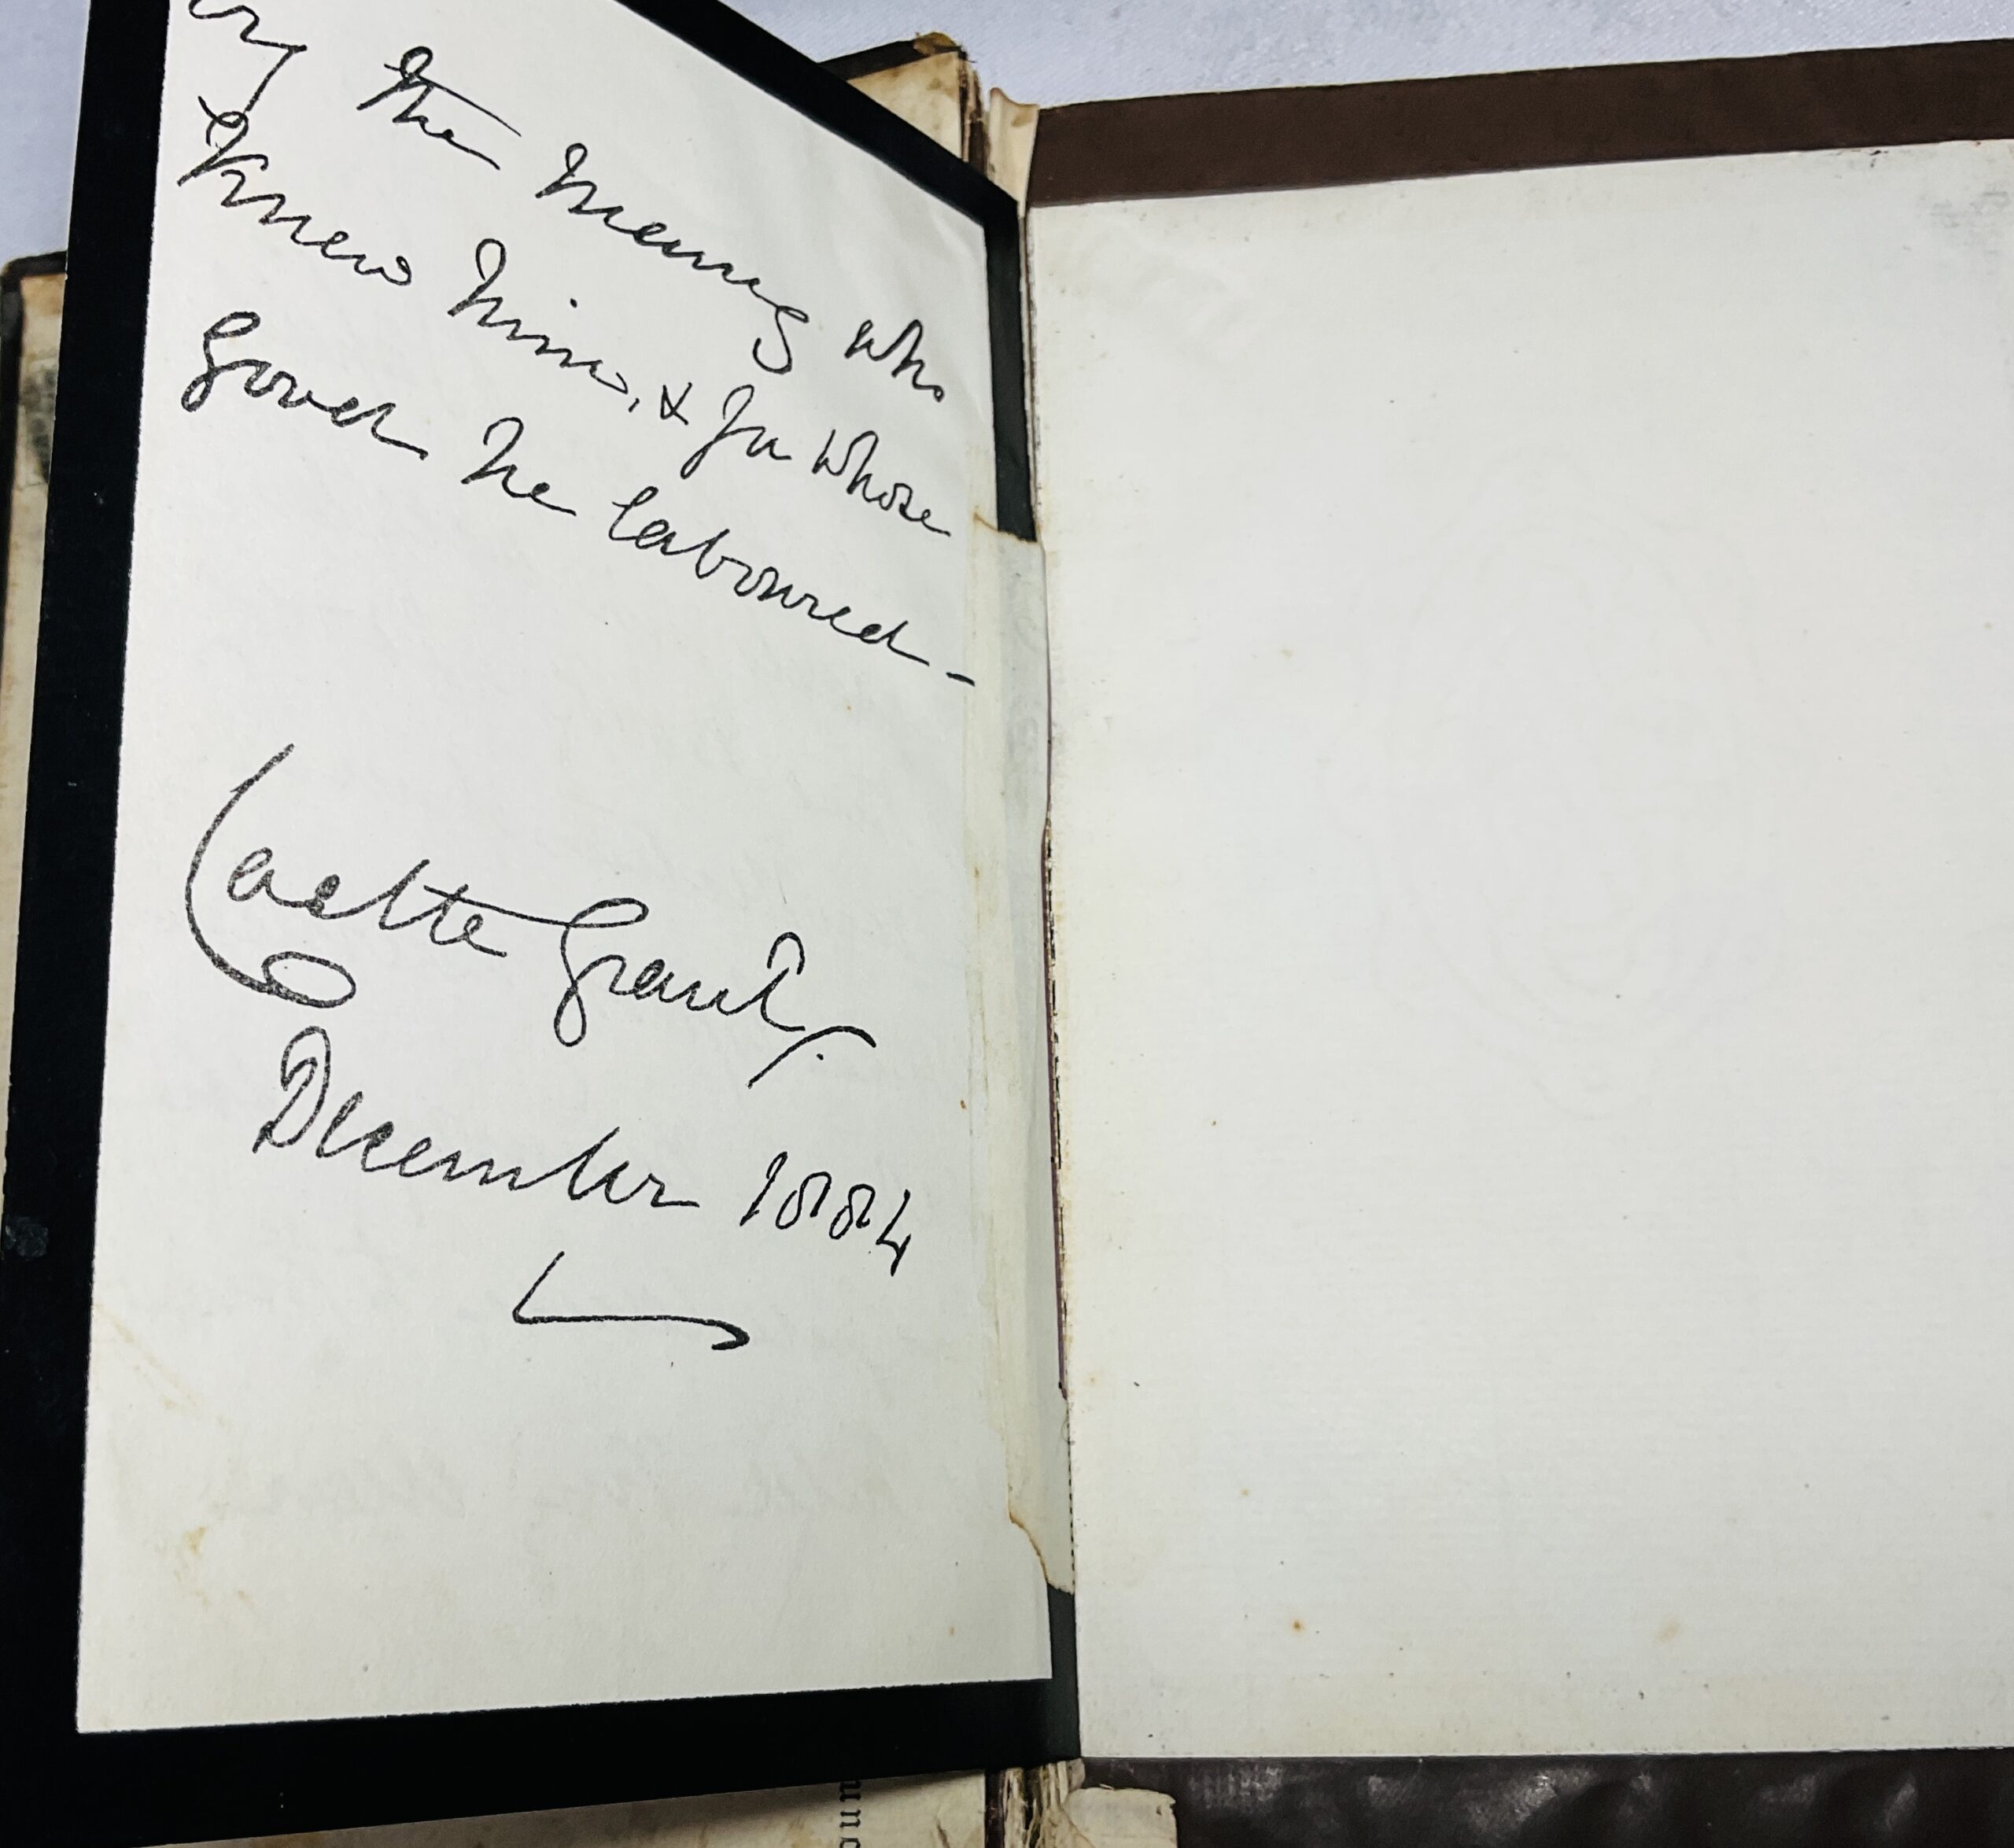 by the many who
knew him, & for whose
good he laboured -
Castle Grant,
December 1884